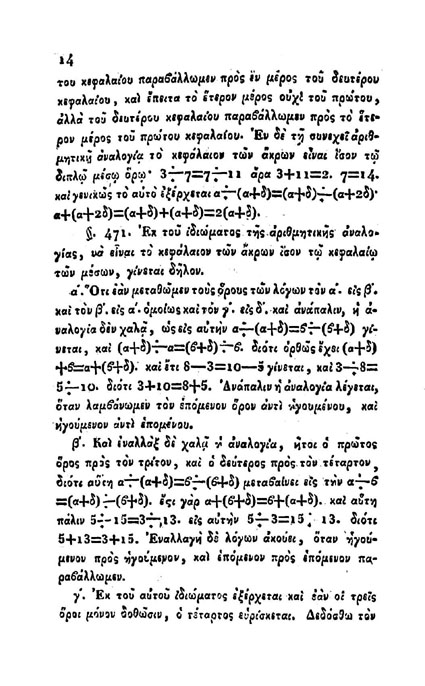 14
του κεφαλαίου παραβάλλωμεν πρὸς ἓν μέρος τοῦ δευτέρου
κεφαλαίου, καὶ ἔπειτα τὸ ἕτερον μέρος οὐχὶ τοῦ πρώτου,
ἀλλὰ τοῦ δευτέρου κεφαλαίου παραβάλλωμεν πρὸς τὸ ἕτε-
ρον μέρος τοῦ πρώτου κεφαλαίου. Ἐν δὲ τῇ συνεχεῖ ἀριθ-
μητικῇ ἀναλογία τὸ κεφάλαιον τῶν ἄκρων εἶναι ἴσον τῷ
διπλῷ μέσῳ ὅρῳ· 3÷7=7÷11 ἄρα 3+11=2. 7=14.
καὶ γενικῶς τὸ αὐτὸ ἐξέρχεται α÷(α+δ)=(α+δ)÷(α+2δ)·
α+(α+2δ)=(α+δ)+(α+δ)=2(α+δ).
§. 471. Ἐκ τοῦ ἰδιώματος τῆς ἀριθμητικῆς ἀναλο-
γίας, νὰ εἶναι τὸ κεφάλαιον τῶν ἄκρων ἴσον τῷ κεφαλαίῳ
τῶν μέσων, γίνεται δῆλον.
α΄. Ὅτι ἐὰν μεταθῶμεν τοὺς ὅρους τῶν λόγων τὸν α΄. εἰς β΄.
καὶ τὸν β΄. εἰς α΄. ὁμοίως καὶ τὸν γ΄. εἰς δ΄. καὶ ἀνάπαλιν, ἡ ἀ-
ναλογία δὲν χαλᾷ, ὡς εἰς αὐτὴν α÷(α+δ)=ϐ÷(ϐ+δ) γί-
νεται, καὶ (α+δ)÷α=(ϐ+δ)÷ϐ. διότι ὀρθῶς ἔχει (α+δ)
+ϐ=α+(ϐ+δ). καὶ ἔτι 8—3=10—5 γίνεται, καὶ 3÷8=
5÷10. διότι 3+10=8+5. Ἀνάπαλιν ἡ ἀναλογία λέγεται,
ὅταν λαμβάνωμεν τὸν ἑπόμενον ὅρον ἀντὶ ἡγουμένου, καὶ
ἡγούμενον ἀντὶ ἑπομένου.
β΄. Καὶ ἐναλλὰξ δὲ χαλᾷ ἡ ἀναλογία, ἤτοι ὁ πρῶτος
ὅρος πρὸς τὸν τρίτον, καὶ ὁ δεύτερος πρὸς τὸν τέταρτον,
διότι αὕτη α÷(α+δ)=ϐ÷(ϐ+δ) μεταβαίνει εἰς τὴν α÷ϐ
=(α+δ)÷(ϐ+δ). ἔϛι γὰρ α+(ϐ+δ)=ϐ+(α+δ). καὶ αὕτη
πάλιν 5÷15=3÷13. εἰς αὐτὴν 5÷3=15÷13. διότι
5+13=3+15. Ἐναλλαγὴ δὲ λόγων ἀκούει, ὅταν ἡγού-
μενον πρὸς ἡγούμενον, καὶ ἑπόμενον πρὸς ἑπόμενον πα-
ραβάλλωμεν.
γ΄. Ἐκ τοῦ αὐτοῦ ἰδιώματος ἐξέρχεται καὶ ἐὰν οἱ τρεῖς
ὅροι μόνον δοθῶσιν, ὁ τέταρτος εὑρίσκεται. Δεδόσθω τὸν